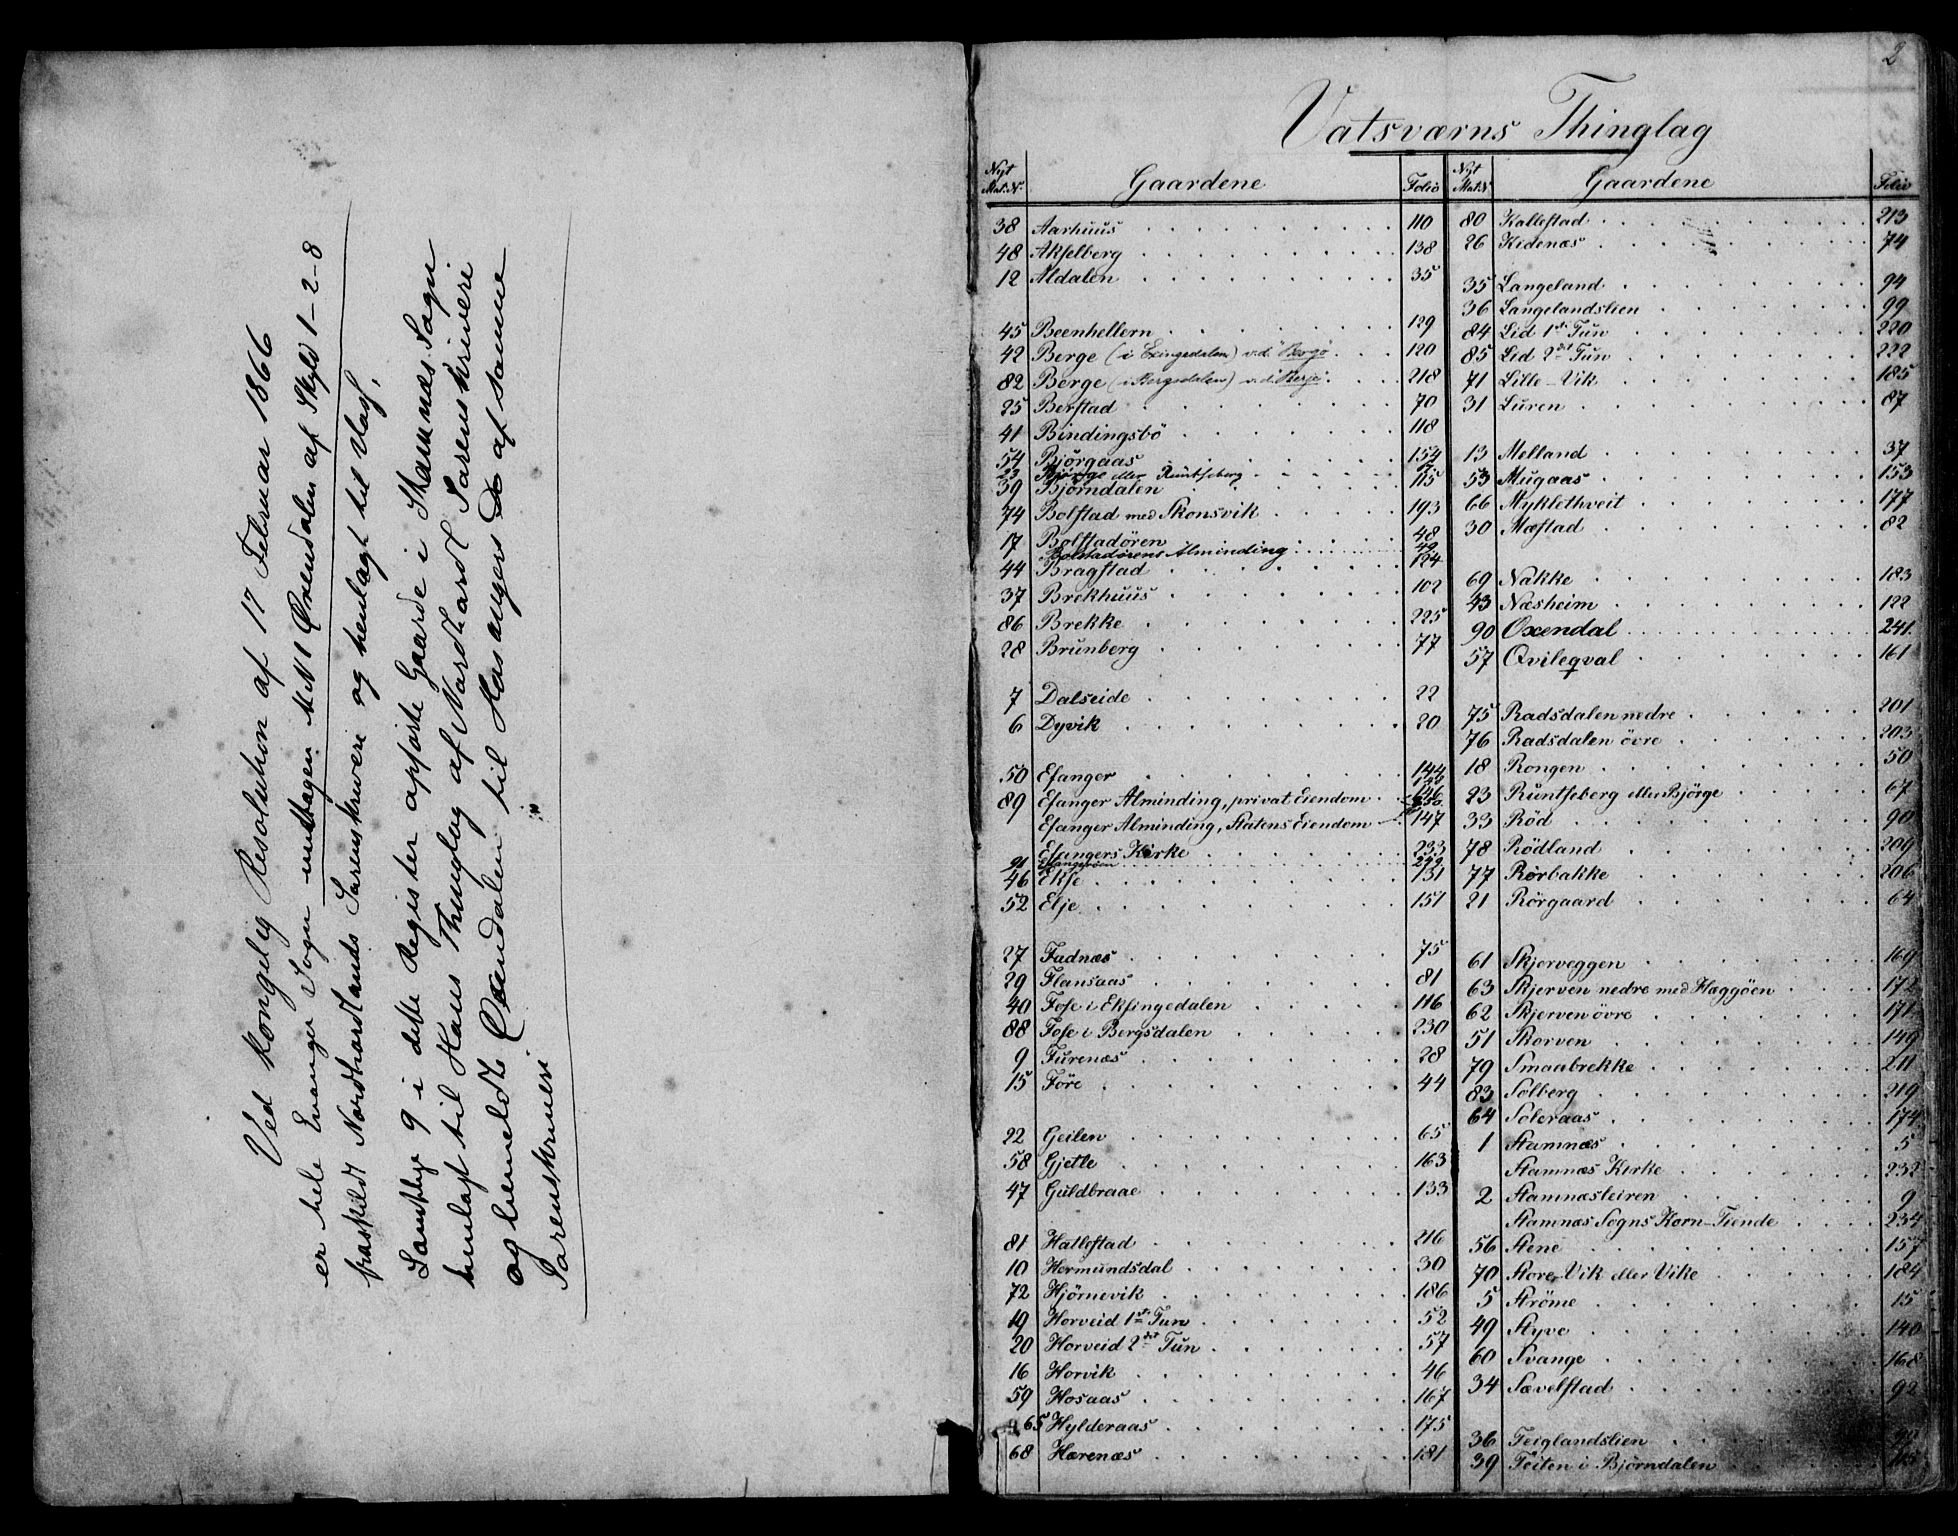 Ved kongelig Resolution af 17 Februar 1866
er hele Evanger Sogn undtagen M N 1 Øxendalen af Skyld 1-2-8
fraskildt Nordhordlands Sorenskriveri og henlagt til Vos.
Samtlige 9 i dette Register opførte Gaarde i Stamnæs Sogn
henlagt til Haus Thinglag af Nordhordl Sorenskriveri
og bemeldte Øxendalen til Hosangers Do af samme
Sorenskriveri
2
Vatsværns Thinglag
Nyt Mat. N. Gaardene Folio
38 Aarhuus 110
48 Akselberg 138
12 Aldalen 35
45 Beenhellern 129
42 Berge (i Exingedalen) v.d. Bergö 120
82 Berge (i Bergsdalen) v.d. Berje 218
25 Berstad 70
41 Bindingsbö 118
54 Björgaas 154
23 Björge eller Runtseberg
39 Björndalen 115
74 Bolstad med Skonsvik 193
17 Bolstadören 48
Bolstadörens Alminding 49
44 Bragstad 124
37 Brekhuus 102
86 Brekke 225
28 Brunberg 77
7 Dalseide 22
6 Dyvik 20
50 Efanger 144
89 Efanger Alminding, privat Eiendom 146
Efanger Alminding, Statens Eiendom 147
Efangers Kirke 233
91 Efangerøen
46 Ekse 131
52 Elje 151
27 Fadnæs 75
29 Flansaas 81
40 Fose i Eksingedalen 116
88 Fose i Bergsdalen 230
9 Furenæs 28
15 Före 44
22 Geilen 65
58 Gjetle 163
47 Guldbraae 133
81 Hallestad 216
10 Hermundsdal 30
72 Hjörnevik 186
19 Horveid 1ste Tun 52
20 Horveid 2det Tun 57
16 Horvik 46
59 Hosaas 167
65 Hylderaas 175
68 Hærenæs 181
Nyt Mat. N. Gaardene Folio
80 Kallestad 213
26 Kidenæs 74
35 Langeland 94
36 Langelandslien 99
84 Lid 1ste Tun 220
85 Lid 2det Tun 222
71 Lille-Vik 185
31 Luren 87
13 Melland 37
53 Mugaas 153
66 Myklethveit 177
30 Mæstad 82
69 Nakke 183
43 Næsheim 122
90 Oxendal 241
57 Qvileqval 161
75 Radsdalen nedre 201
76 Radsdalen övre 203
18 Rongen 50
23 Runtseberg eller Björge 67
33 Röd 90
78 Rödland 209
77 Rörbakke 206
21 Rörgaard 64
61 Skjerveggen 169
63 Skjerven nedre med Hæggöen 172
62 Skjerven övre 171
51 Skorven 149
79 Smaabrekke 211
83 Solberg 219
64 Soleraas 174
1 Stamnæs 5
Stamnæs Kirke 232
2 Stamnæsleiren 9
Stamnæs Sogns Korn-Tiende 234
56 Stene 157
70 Store-Vik eller Vike 184
5 Ströme 15
49 Styve 140
60 Svange 168
34 Sævelstad 92
36 Teiglandslien
39 Teiten i Björndalen 115